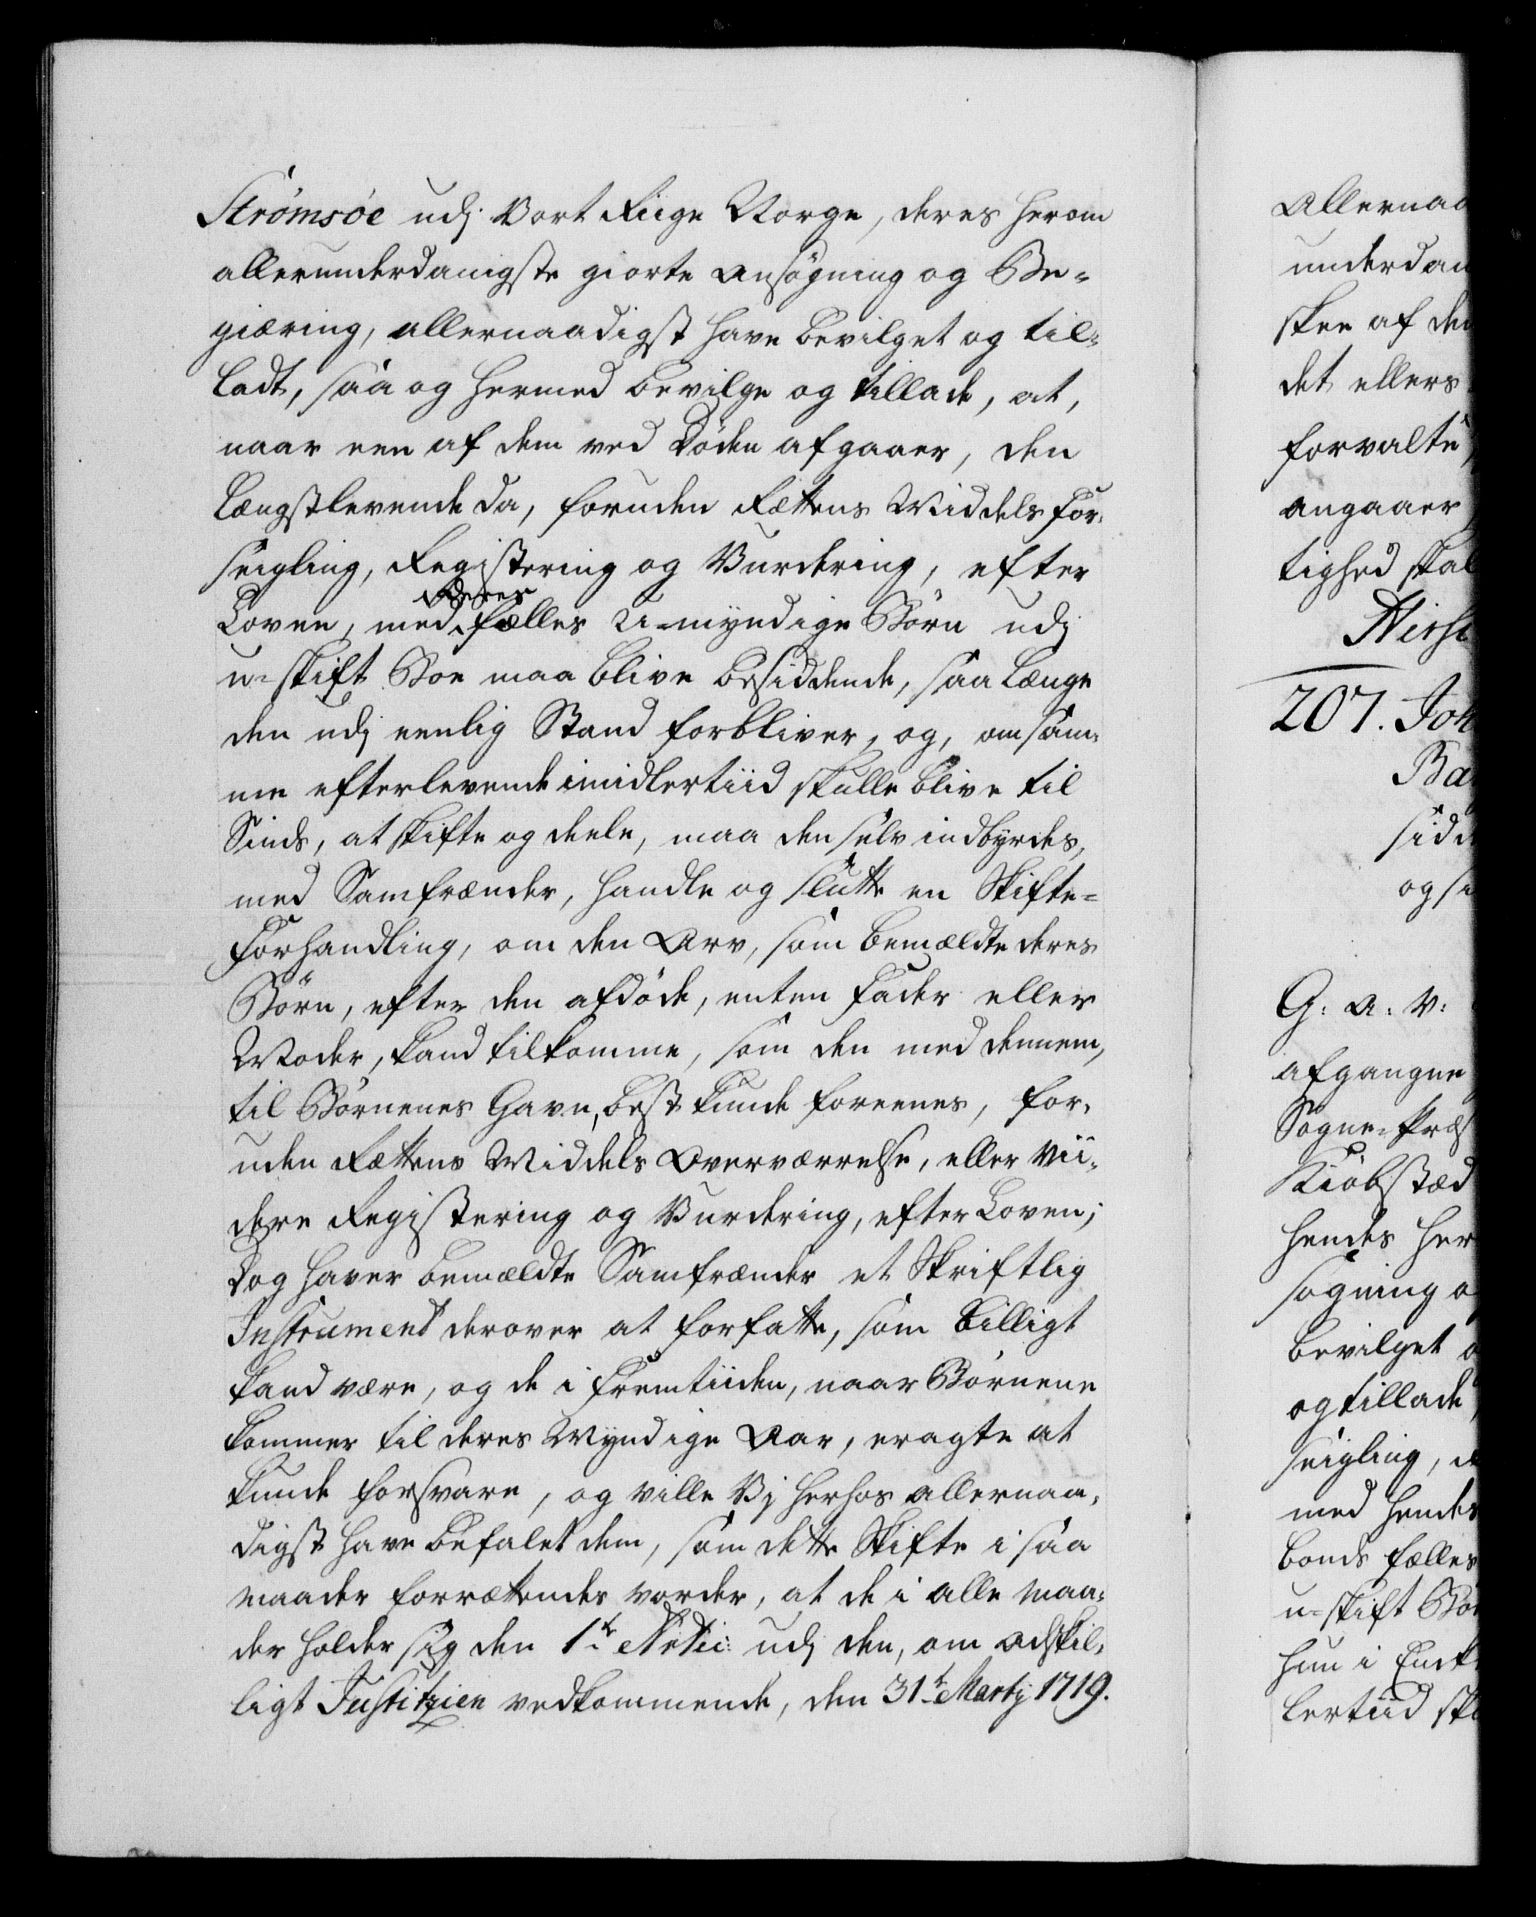 Strømsøe udj Vort Riige Norge, deres herom
allerunderdanigste giorte Ansøgning og Be-
giæring, allernaadigst have bevilget og til-
ladt, saa og hermed bevilge og tillade, at,
naar een af dem ved Døden afgaaer, den
Længstlevende da, foruden Rættens Middels For-
seigling, Registering og Vurdering, efter
Loven, med deres fælles U-myndige Børn udj
u-skift Boe maa blive besiddende, saa længe
den udj eenlig Stand forbliver, og, om sam-
me efterlevende imidlertiid skulle blive til
Sinds, at skifte og deele, maa den selv indbyrdes,
med Samfrænder, handle og slutte en Skifte-
Forhandling, om den Arv, som bemældte deres
Børn, efter den afdøde, enten Fader eller
Moder, kand tilkomme, som den med dennem,
til Børnenes Gavn, best kunde foreenes, for-
uden Rættens Middels Overværrelse, eller vii-
dere Registering og Vurdering, efter Loven;
Dog haver bemældte Samfrænder et Skriftlig
Instrument derover at forfatte, som billigt
kand være, og de i Fremtiiden, naar Børnene
kommer til deres Myndige Aar, eragte at
kunde forsvare, og ville Vj herhos allernaa-
digst have befalet dem, som dette Skifte i saa
maader forrættendes vorder, at de i alle maa-
der holder sig den 1te Artic: udj den, om adskil-
ligt Justitzien vedkommende, den 31te Martij 1719.
Allernaa
underdan
skee af den
det ellers
forvalte
angaaer
tighed skal
Hirsc
207. Joh
Ba
sidd
og s
G: A: V:
afgangne
Sogne-Præs
Kiøbstæd
hendes her
søgning o
bevilget o
og tillade
seigling,
med hendes
bonds fælles
u-skift Bo
hun i Enke
lertiid sk